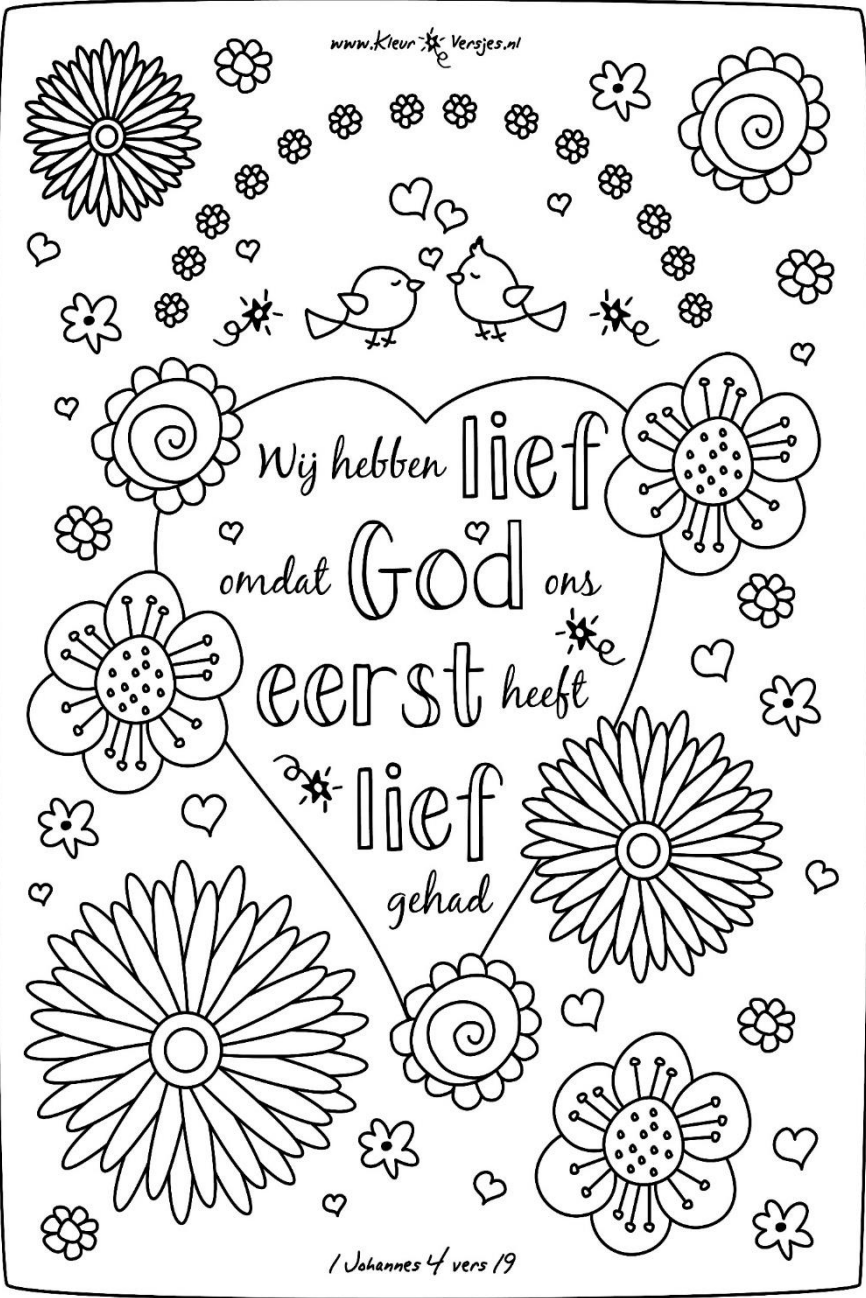 www.Kleur Versjes.nl
Wij hebben lief
omdat God ons
eerst heeft
lief
gehad
1 Johannes 4 vers 19